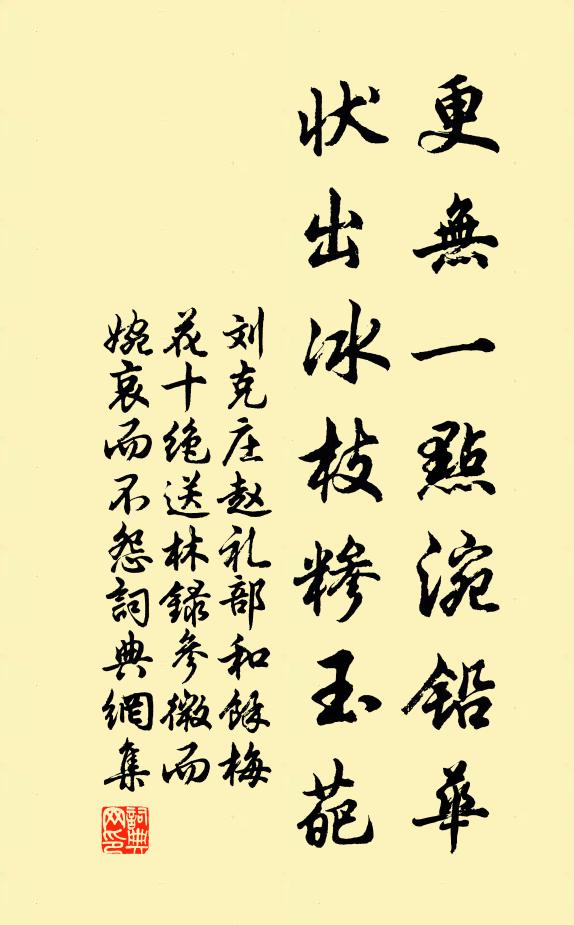 更無一點涴鉛華
状出冰枝糁玉葩
刘克庄赵礼部和馀梅
花十绝送林録参微而
婉哀而不怨詞典網集
詞典
网印